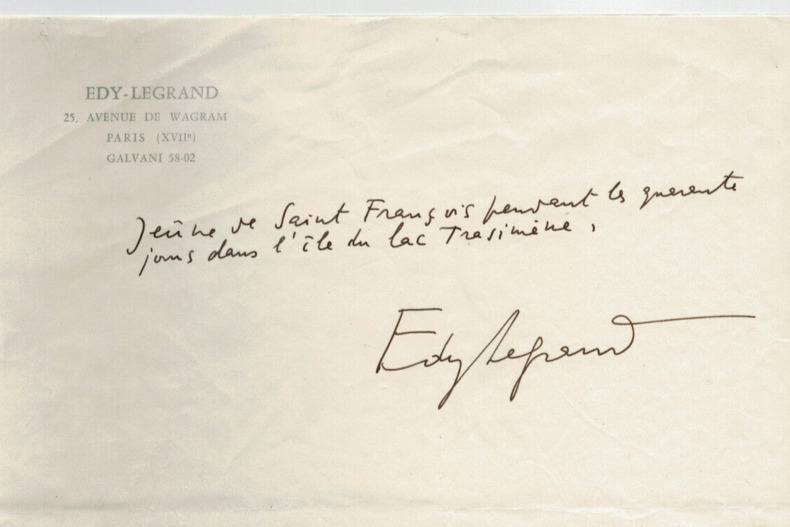 EDY-LEGRAND
25, AVENUE DE WAGRAM
PARIS (XVIIe)
GALVANI 58-02
Jeûne de Saint François pendant les quarante
jours dans l'île du lac Trasimène,
Edy Legrand